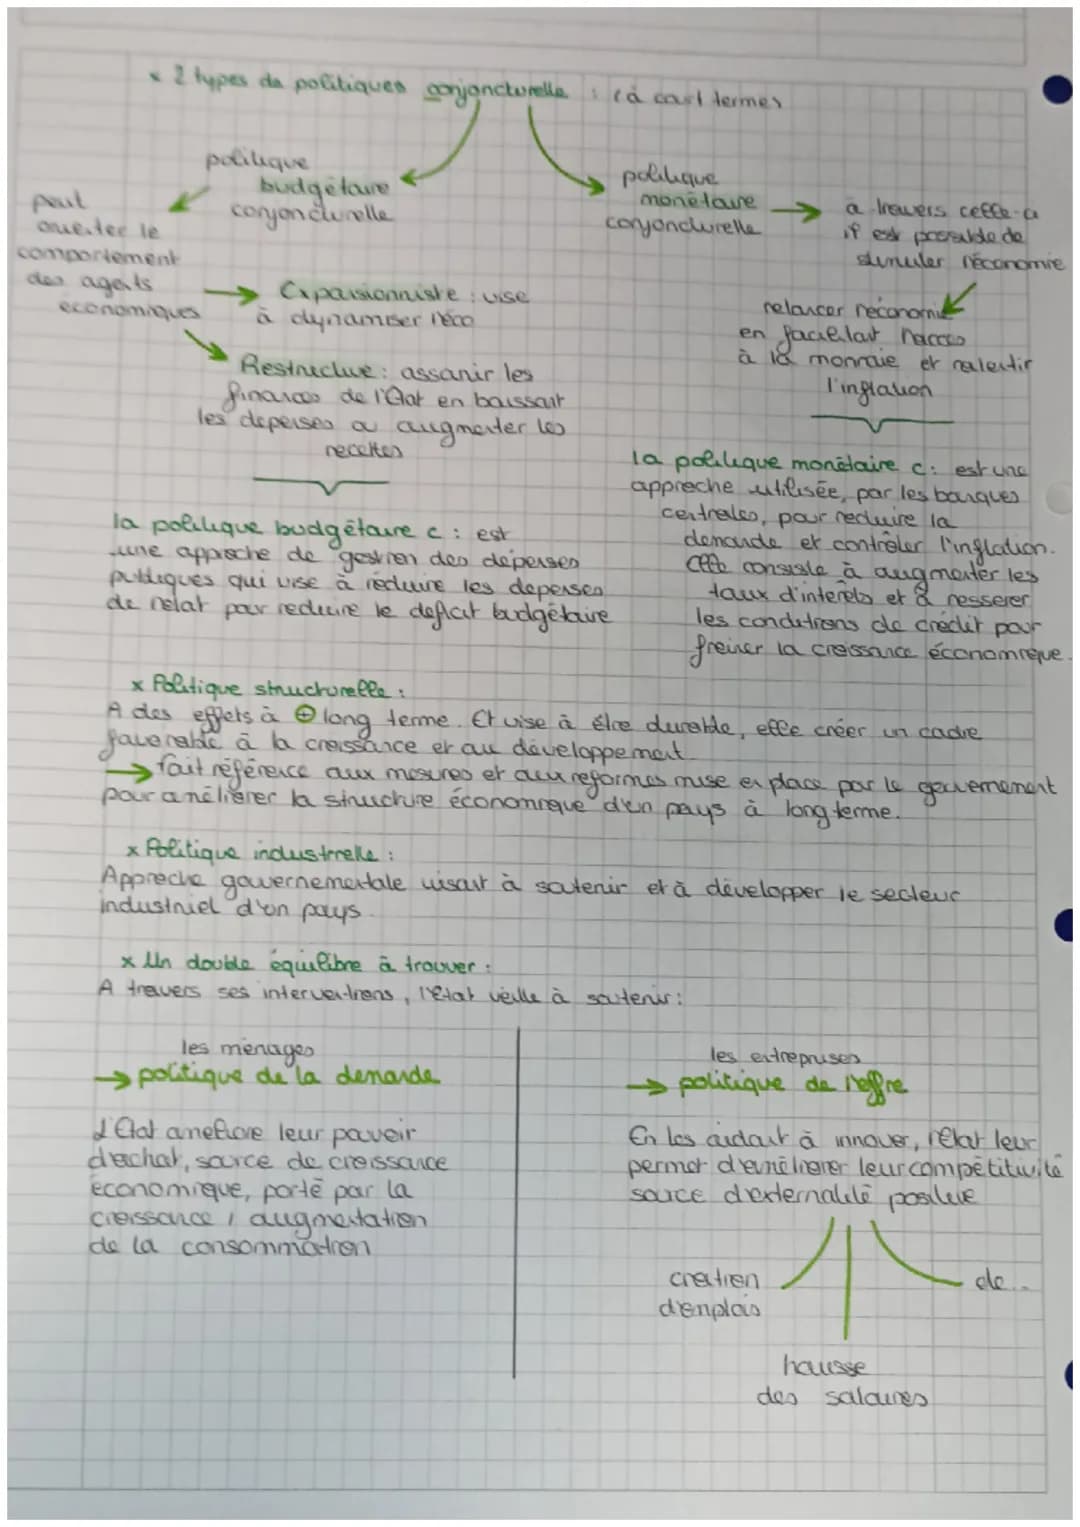 x 2 types de politiques conjoncturelle : (à court termes
politique
budgétaire
conjoncturelle
peut
orienter le
comportement
des agents
économiques
Expansionniste : vise
à dynamiser l'éco
Restrictive : assanir les
finances de l'Etat en baissant
les depenses ou augmenter les
recettes
la politique budgétaire c : est
une approche de gestion des dépenses
publiques qui vise à réduire les depenses
de l'etat pour reduire le deficit budgétaire
politique
monétaire
conjoncturelle
à travers celle-ci
il est possible de
stimuler l'économie
relancer l'économie
en facilitant l'accès
à la monnaie et ralentir
l'inflation
la politique monétaire c : est une
approche utilisée, par les banques
centrales, pour reduire la
demande et contrôler l'inflation.
Elle consiste à augmenter les
taux d'interets et à resserer
les conditions de crédit pour
freiner la croissance économique.
x Politique structurelle :
A des effets à ⊕ long terme. Et vise à être durable, elle créer un cadre
favorable à la croissance et au développement
→ fait référence aux mesures et aux reformes mise en place par le gouvernement
pour améliorer la structure économique d'un pays à long terme.
x Politique industrielle :
Approche gouvernementale visant à soutenir et à développer le secteur
industriel d'un pays.
x Un double équilibre à trouver :
A travers ses interventions, l'Etat veille à soutenir :
les ménages
→ politique de la demande
L'Etat améliore leur pouvoir
d'achat, source de croissance
économique, porté par la
croissance / augmentation
de la consommation
les entreprises
→ politique de l'offre
En les aidant à innover, l'Etat leur
permet d'améliorer leur compétitivité
source d'externalité positive
création
d'emplois
hausse
des salaires
de...